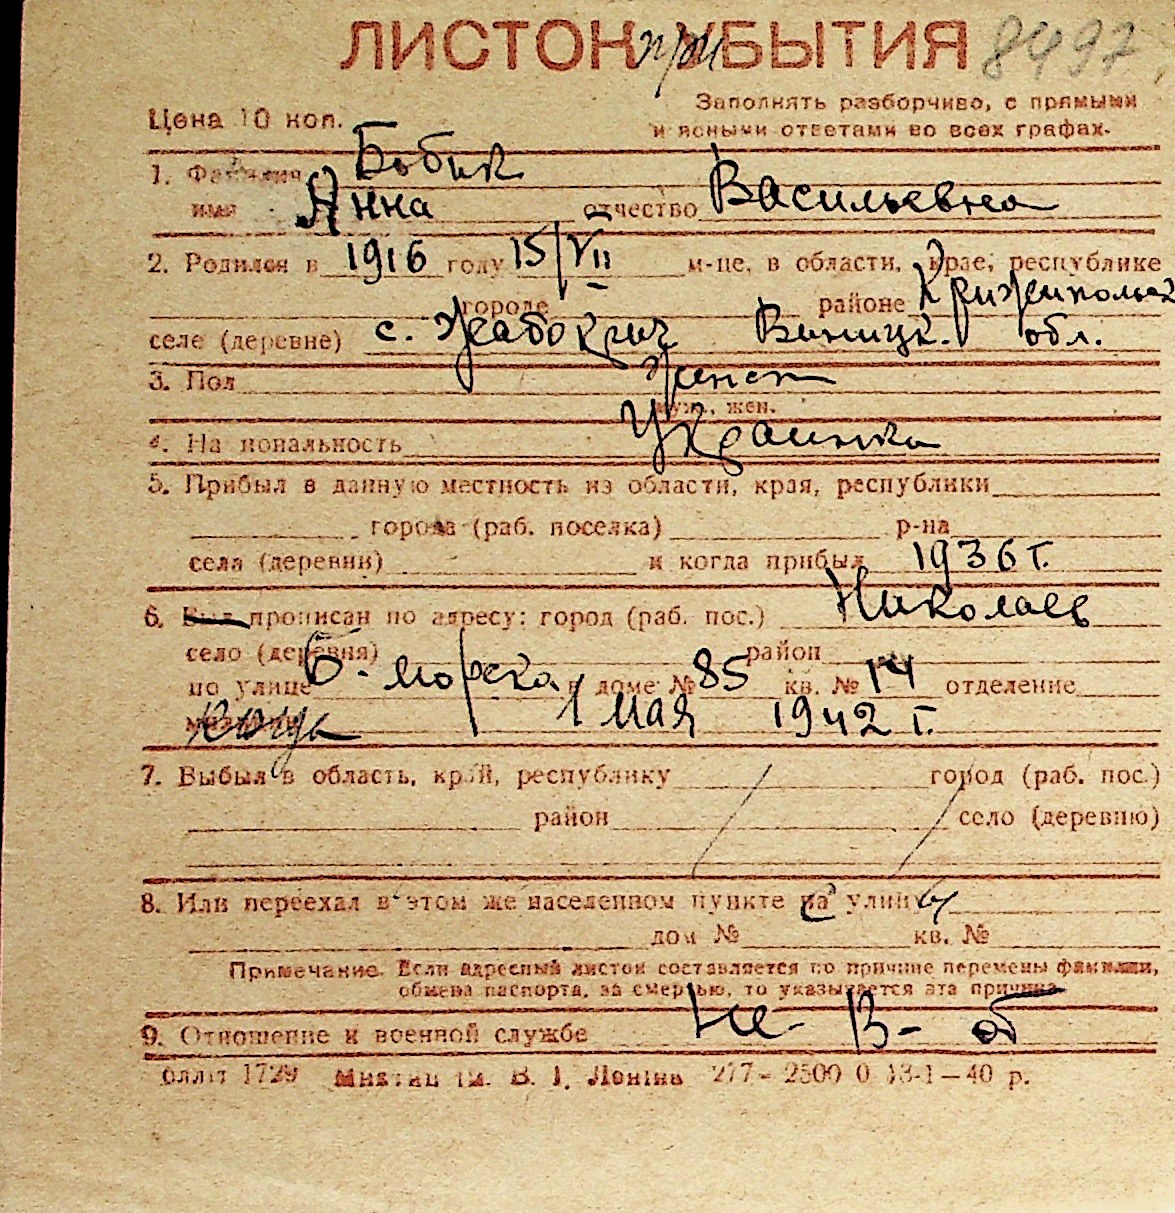 ЛИСТОК при БЫТИЯ 8497
Цена 10 коп. Заполнять разборчиво, с прямыми
и ясными ответами во всех графах.
1. Фамилия Бобик
имя Анна отчество Васильевна
2. Родился в 1916 году 15/VII м-це, в области, крае, республике
городе районе Крижопольск
селе (деревне) с. Жабокрич Виницк. обл.
3. Пол Женск
муж., жен.
4. Национальность Украинка
5. Прибыл в данную местность из области, края, республики
города (раб. поселка) р-на
села (деревни) и когда прибыл 1936 г.
6. Был прописан по адресу: город (раб. пос.) Николаев
село (деревня) район
по улице Б. Морска в доме № 85 кв. № 14 отделение
1 мая 1942 г.
7. Выбыл в область, край, республику город (раб. пос.)
район село (деревню)
8. Или переехал в этом же населенном пункте на улицу
дом № кв. №
Примечание. Если адресный листок составляется по причине перемены фамилии,
обмена паспорта, за смертью, то указывается эта причина.
9. Отношение к военной службе не в-об
1729 им. В. І. Леніна 277 - 2500 0 13-1-40 р.